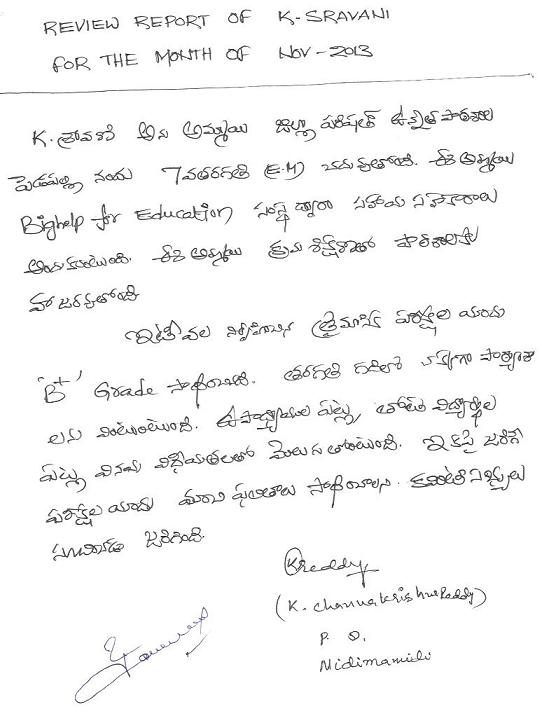 REVIEW REPORT OF K-SRAVANI
FOR THE MONTH OF NOV-2013
K. శ్రావణి అను అమ్మాయి జిల్లా పరిషత్ ఉన్నత పాఠశాల
పెడపల్లి నందు 7వతరగతి (E.M) చదువుతోంది. ఈ అమ్మాయి
Bighelp for Education సంస్థ ద్వారా సహాయ సహకారాలు
అందుకుంటుంది. ఈ అమ్మాయి క్రమ శిక్షణతో పాఠశాలకు
హాజరవుతోంది
ఇటీవల నిర్వహించిన త్రైమాసిక పరీక్షల యందు
'B+' Grade సాధించింది. తరగతి గదిలో చక్కగా పాఠ్యాంశా
లను వింటుంటుంది. ఉపాధ్యాయుల పట్ల, తోటి విద్యార్థుల
పట్ల వినయ విధేయతలతో మెలుగుతోంటుంది. ఇకపై జరిగే
పరీక్షల యందు మంచి ఫలితాలు సాధించాలని
సూచించడం జరిగింది.
KReddy
(K. Channakrishna Reddy)
P. O.
Nidimamidi